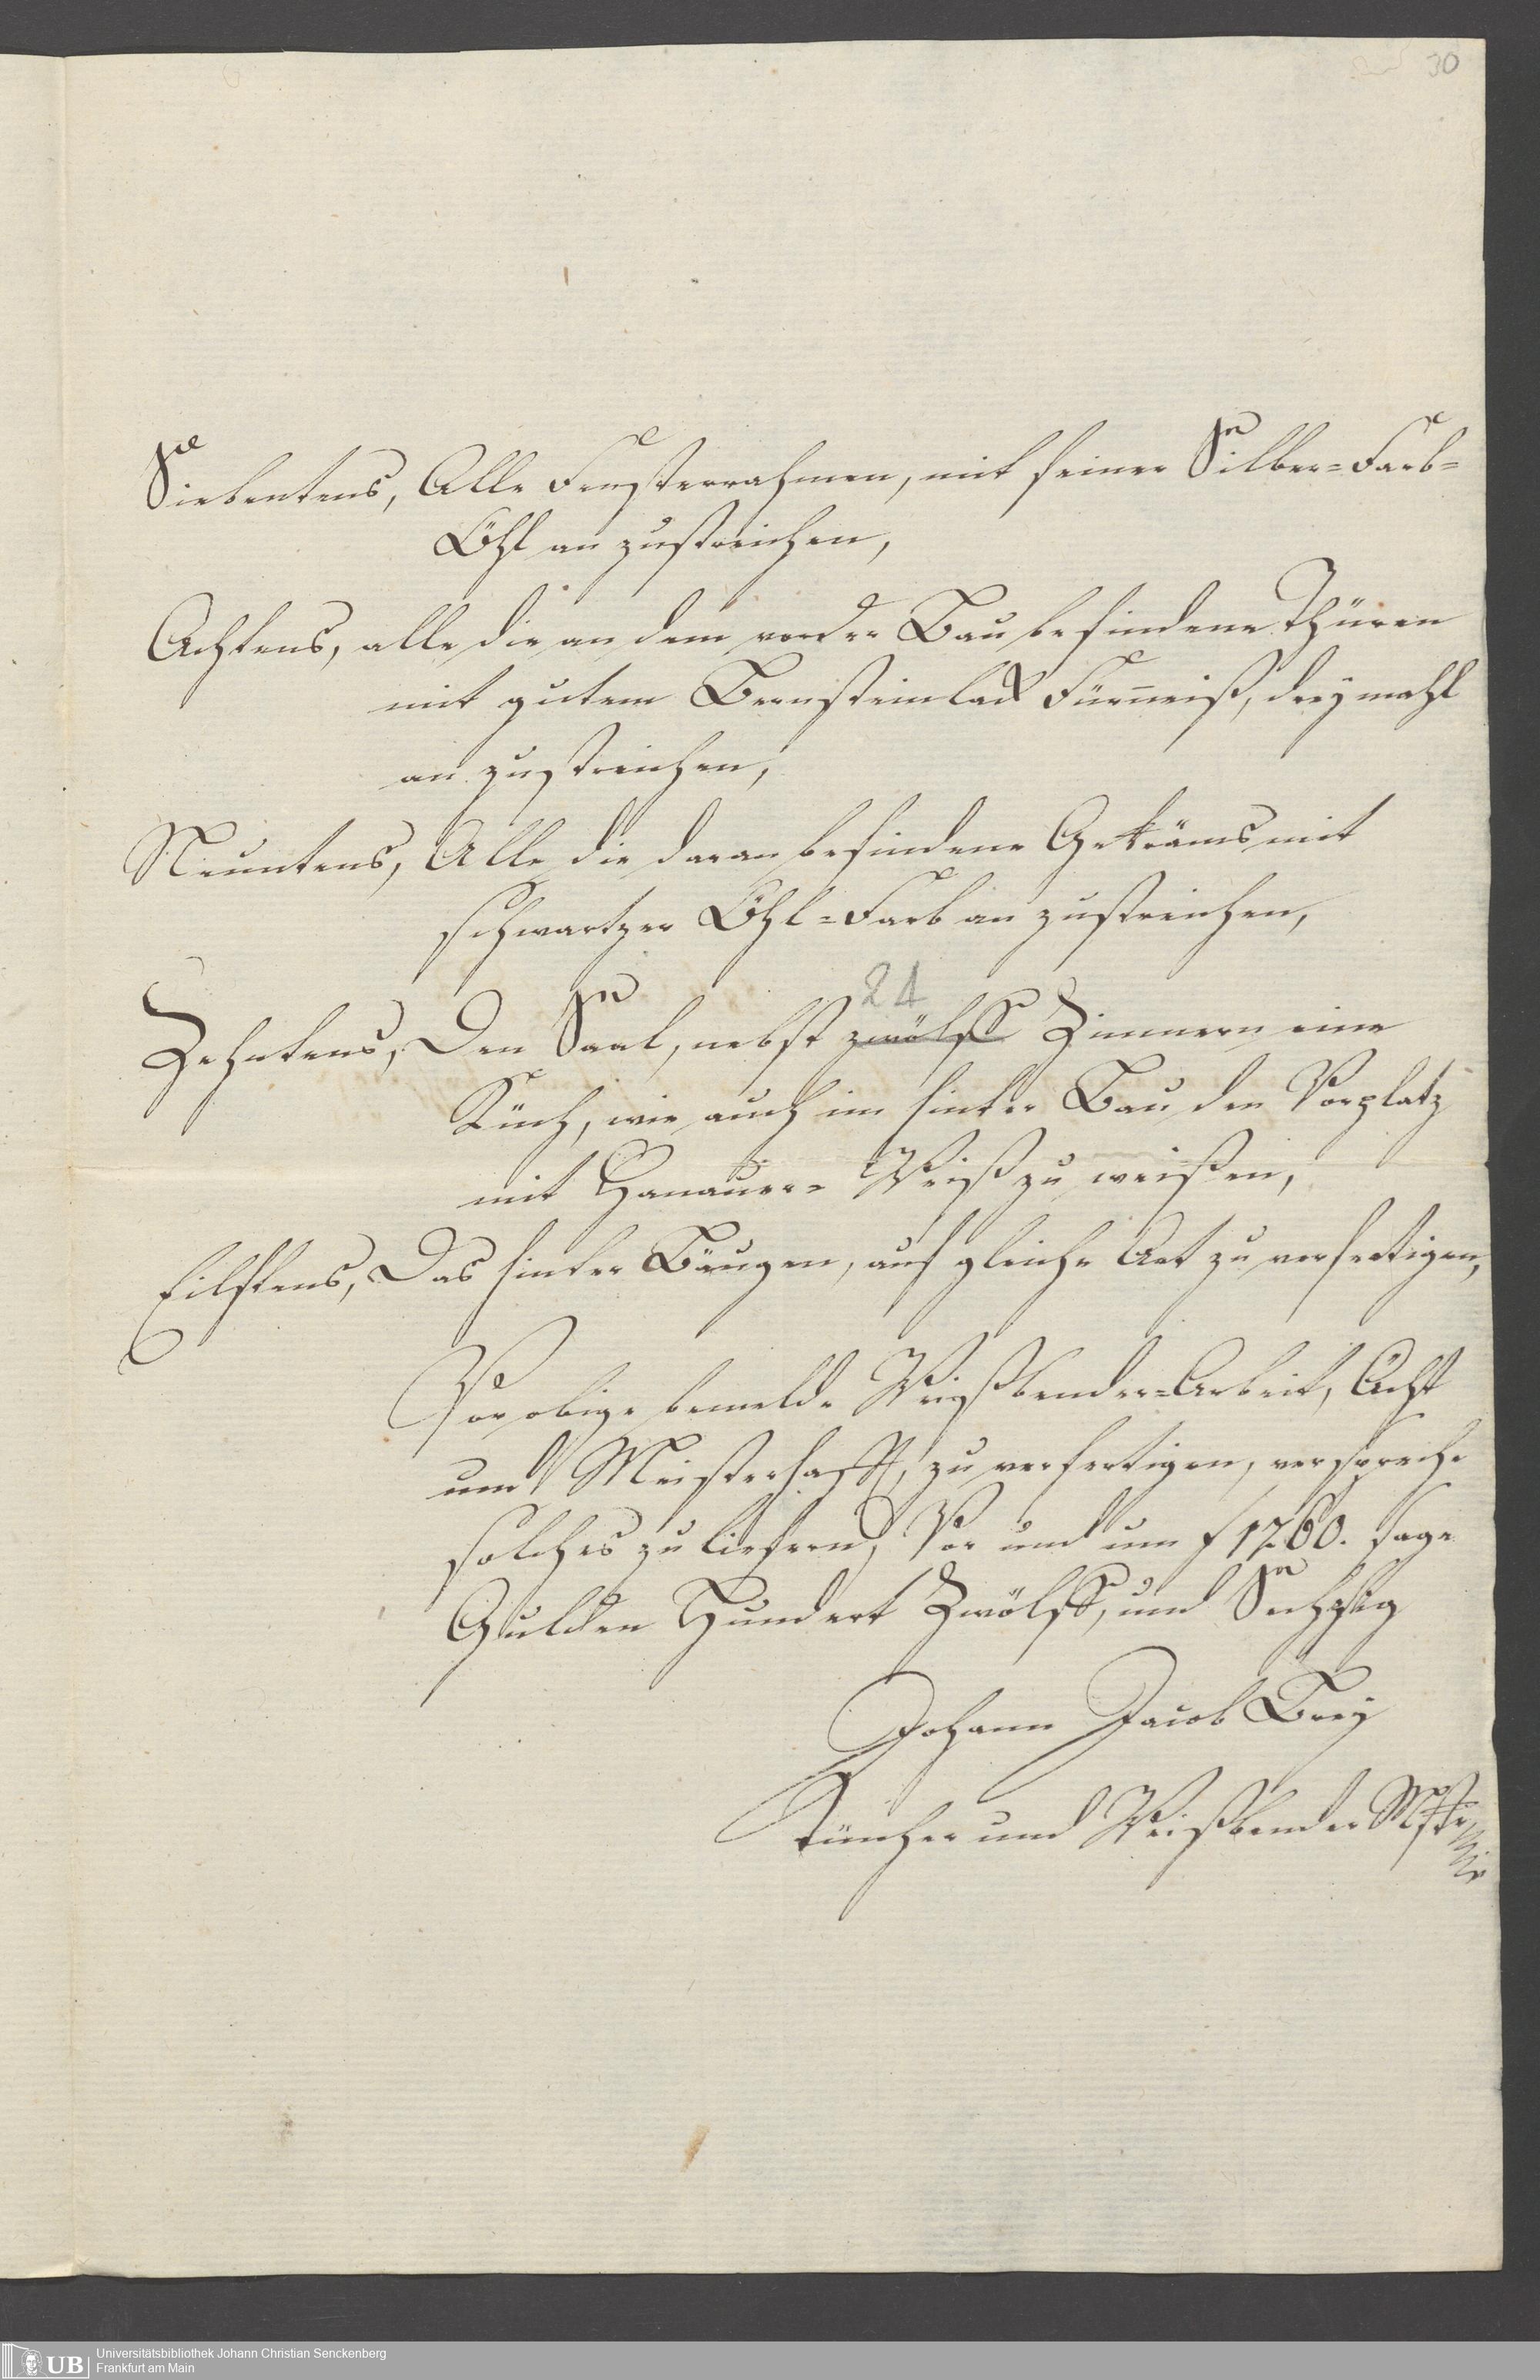 30
Siebentens, Alle Fensterrahmen, mit feiner Silber=Farb=
Öhl an zustreichen,
Achtens, alle die an dem vorder Bau befindene Thüren
mit gutem Bernsteinlack Fürneiß, dreÿ mahl
an zustreichen,
Neuntens, Alle die daran befindene Gekräms mit
schwartzer Öhl=Farb an zustreichen,
24
Zehntens, Den Saal, nebst zwölff Zimmern eine
Küch, wie auch im hinter Bau den Vorplatz
mit Hanauer= Weiß zu weißen,
Eilftens, Das hinter Bäugen, auf gleiche Art zu verfertigen,
Vor obige bemelde Weißbender=Arbeit, Ächt
und Meisterhafft, zu verfertigen, verspreche
solches zu liefern, Vor und um f 1260. sage
Gulden Hundert Zwölff, und Sechzig
Johann Jacob Breÿ
Tüncher und Weißbender Mstr
UB
Universitätsbibliothek Johann Christian Senckenberg
Frankfurt am Main